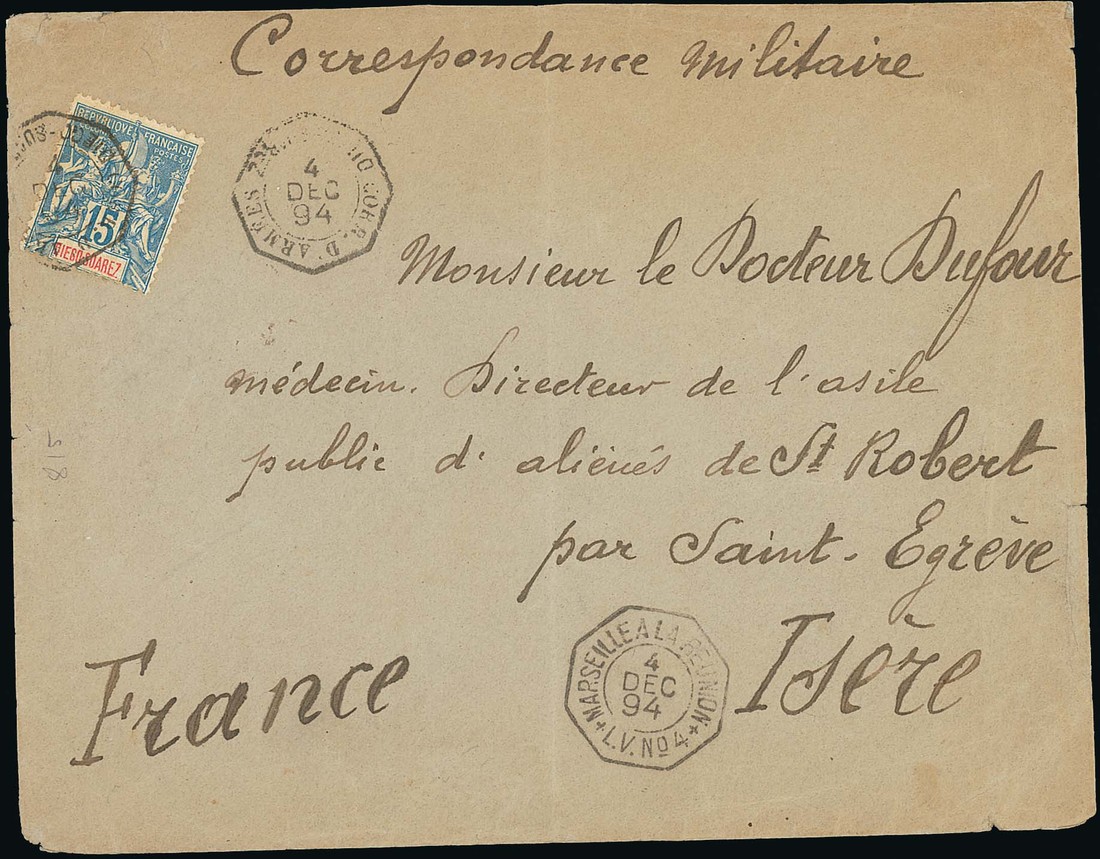 Correspondance militaire
REPVBLIQVE FRANÇAISE
POSTES
15
DIEGO-SUAREZ
CORR. D'ARMÉES
4
DEC
94
Monsieur le Docteur Dufour
médecin. Directeur de l'asile
public d'aliénés de St Robert
par Saint-Egrève
Isère
France
MARSEILLE A LA REUNION
4
DEC
94
L.V. No 4
815